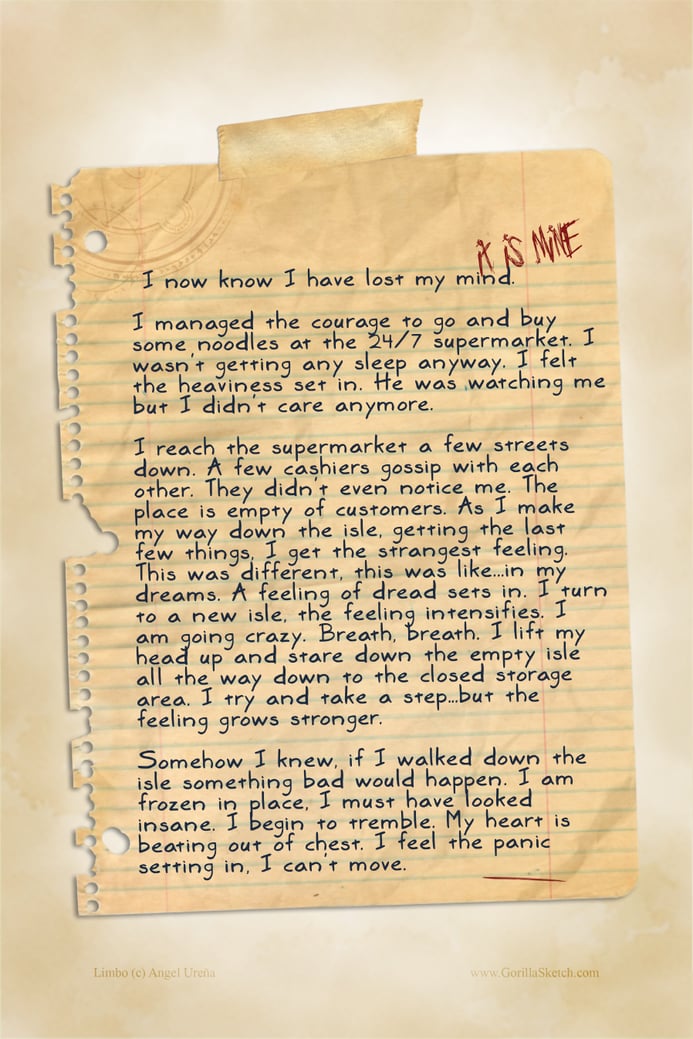 iT iS MiNE
I now know I have lost my mind.
I managed the courage to go and buy
some noodles at the 24/7 supermarket. I
wasn't getting any sleep anyway. I felt
the heaviness set in. He was watching me
but I didn't care anymore.
I reach the supermarket a few streets
down. A few cashiers gossip with each
other. They didn't even notice me. The
place is empty of customers. As I make
my way down the isle, getting the last
few things, I get the strangest feeling.
This was different, this was like...in my
dreams. A feeling of dread sets in. I turn
to a new isle, the feeling intensifies. I
am going crazy. Breath, breath. I lift my
head up and stare down the empty isle
all the way down to the closed storage
area. I try and take a step...but the
feeling grows stronger.
Somehow I knew, if I walked down the
isle something bad would happen. I am
frozen in place, I must have looked
insane. I begin to tremble. My heart is
beating out of chest. I feel the panic
setting in, I can't move.
Limbo (c) Angel Ureña
www.GorillaSketch.com